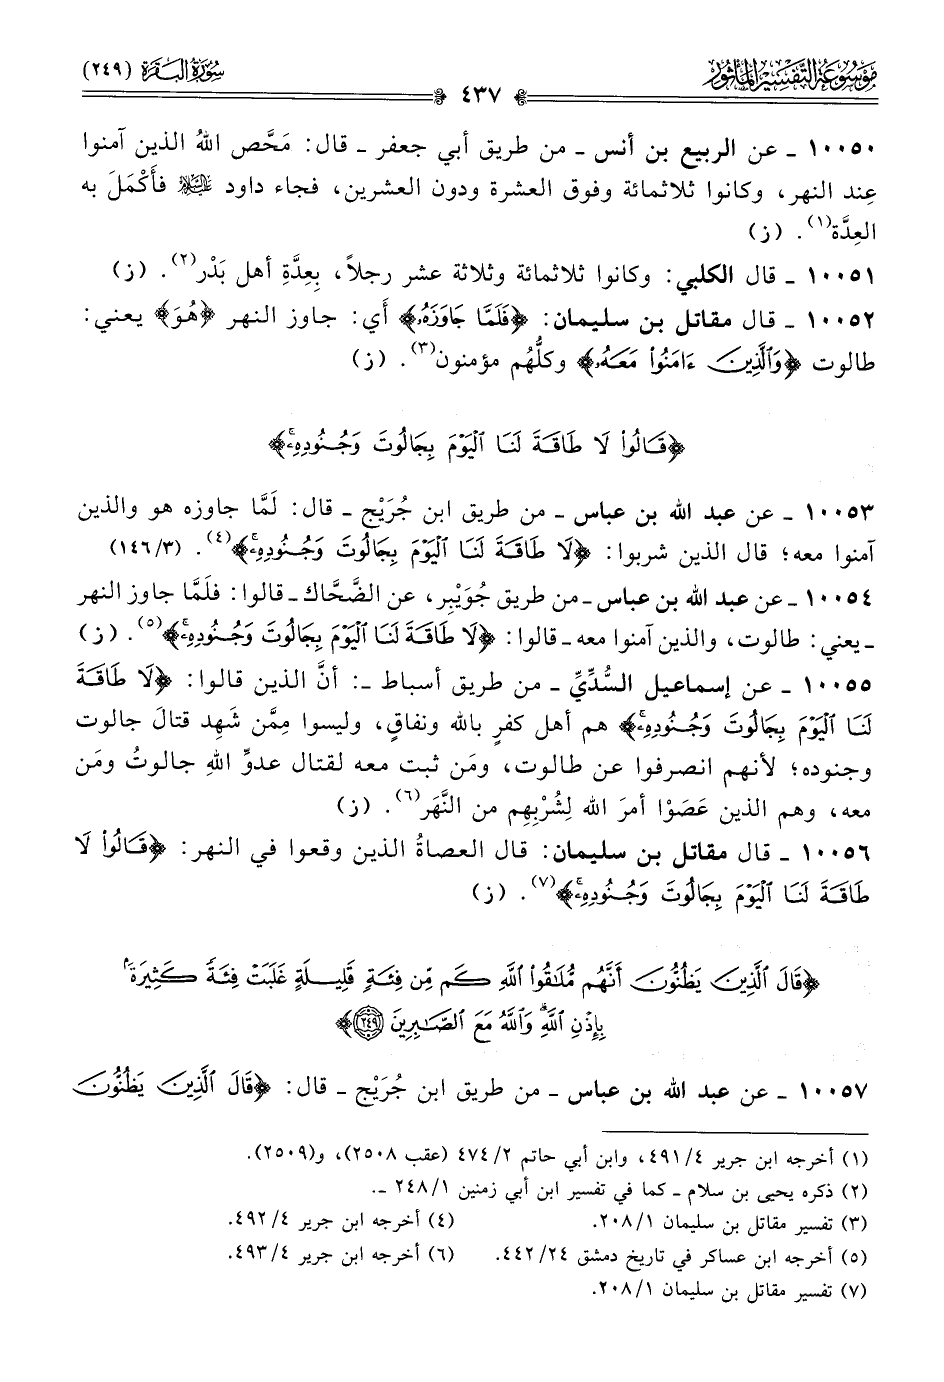 موسوعة التفسير المأثور
٤٣٧
سورة البقرة (٢٤٩)
١٠٠٥٠ ـ عن الربيع بن أنس ـ من طريق أبي جعفر ـ قال: مَحَّص اللهُ الذين آمنوا
عِند النهر، وكانوا ثلاثمائة وفوق العشرة ودون العشرين، فجاء داود عليه السلام فأَكْمَلَ به
العِدَّة(١). (ز)
١٠٠٥١ ـ قال الكلبي: وكانوا ثلاثمائة وثلاثة عشر رجلاً، بِعِدَّةِ أهل بَدْر(٢). (ز)
١٠٠٥٢ ـ قال مقاتل بن سليمان: ﴿فَلَمَّا جَاوَزَهُۥ﴾ أي: جاوز النهر ﴿هُوَ﴾ يعني:
طالوت ﴿وَٱلَّذِينَ ءَامَنُوا۟ مَعَهُۥ﴾ وكلُّهُم مؤمنون(٣). (ز)
﴿قَالُوا۟ لَا طَاقَةَ لَنَا ٱلْيَوْمَ بِجَالُوتَ وَجُنُودِهِۦ﴾
١٠٠٥٣ ـ عن عبد الله بن عباس ـ من طريق ابن جُرَيْج ـ قال: لَمَّا جاوزه هو والذين
آمنوا معه؛ قال الذين شربوا: ﴿لَا طَاقَةَ لَنَا ٱلْيَوْمَ بِجَالُوتَ وَجُنُودِهِۦ﴾(٤). (١٤٦/٣)
١٠٠٥٤ ـ عن عبد الله بن عباس ـ من طريق جُوَيْبِر، عن الضَّحَّاك ـ قالوا: فلَمَّا جاوز النهر
ـ يعني: طالوت، والذين آمنوا معه ـ قالوا: ﴿لَا طَاقَةَ لَنَا ٱلْيَوْمَ بِجَالُوتَ وَجُنُودِهِۦ﴾(٥). (ز)
١٠٠٥٥ ـ عن إسماعيل السُّدِّيِّ ـ من طريق أسباط ـ: أنَّ الذين قالوا: ﴿لَا طَاقَةَ
لَنَا ٱلْيَوْمَ بِجَالُوتَ وَجُنُودِهِۦ﴾ هم أهل كفرٍ بالله ونفاقٍ، وليسوا مِمَّن شَهِد قتالَ جالوت
وجنوده؛ لأنهم انصرفوا عن طالوت، ومَن ثبت معه لقتال عدوِّ اللهِ جالوتُ ومَن
معه، وهم الذين عَصَوْا أمرَ الله لِشُرْبِهِم من النَّهَر(٦). (ز)
١٠٠٥٦ ـ قال مقاتل بن سليمان: قال العصاةُ الذين وقعوا في النهر: ﴿قَالُوا۟ لَا
طَاقَةَ لَنَا ٱلْيَوْمَ بِجَالُوتَ وَجُنُودِهِۦ﴾(٧). (ز)
﴿قَالَ ٱلَّذِينَ يَظُنُّونَ أَنَّهُم مُّلَٰقُوا۟ ٱللَّهِ كَم مِّن فِئَةٍ قَلِيلَةٍ غَلَبَتْ فِئَةً كَثِيرَةًۢ
بِإِذْنِ ٱللَّهِۗ وَٱللَّهُ مَعَ ٱلصَّٰبِرِينَ ٢٤٩﴾
١٠٠٥٧ ـ عن عبد الله بن عباس ـ من طريق ابن جُرَيْج ـ قال: ﴿قَالَ ٱلَّذِينَ يَظُنُّونَ
(١) أخرجه ابن جرير ٤/ ٤٩١، وابن أبي حاتم ٢/ ٤٧٤ (عقب ٢٥٠٨)، و(٢٥٠٩).
(٢) ذكره يحيى بن سلام ـ كما في تفسير ابن أبي زمنين ١/ ٢٤٨ ـ.
(٣) تفسير مقاتل بن سليمان ١/ ٢٠٨. (٤) أخرجه ابن جرير ٤/ ٤٩٢.
(٥) أخرجه ابن عساكر في تاريخ دمشق ٢٤/ ٤٤٢. (٦) أخرجه ابن جرير ٤/ ٤٩٣.
(٧) تفسير مقاتل بن سليمان ١/ ٢٠٨.